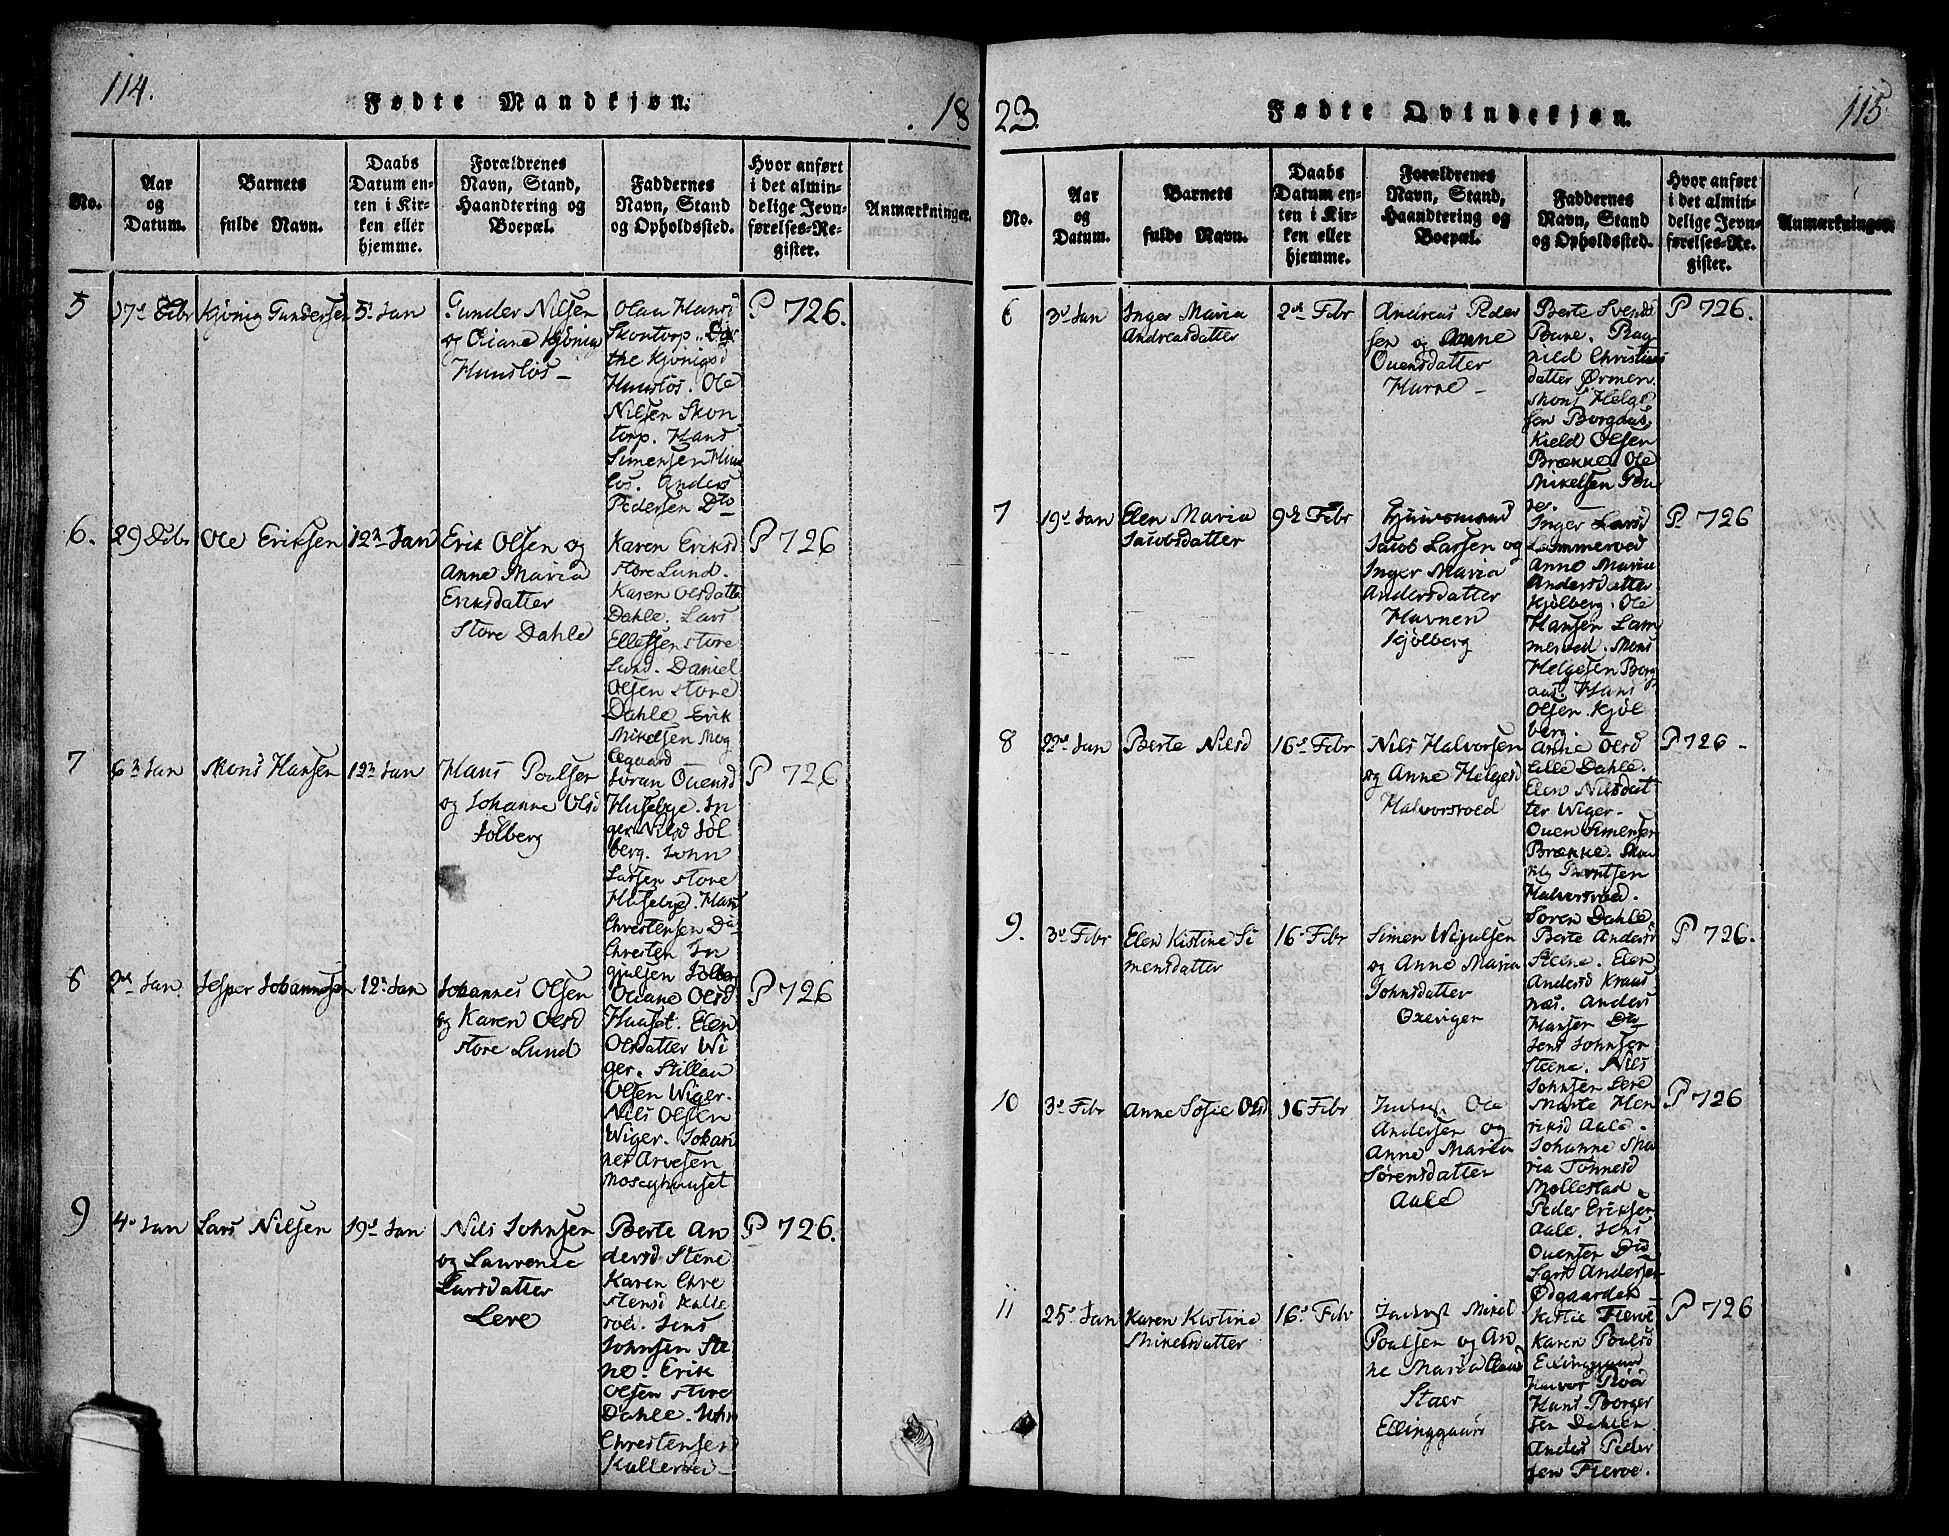 114.
Fødte Mandkjøn.
18
No.
Aar
og
Datum.
Barnets
fulde Navn.
Daabs
Datum en-
ten i Kir-
ken eller
hjemme.
Forældrenes
Navn, Stand,
Haandtering og
Boepæl.
Faddernes
Navn, Stand
og Opholdssted.
Hvor anført
i det almin-
delige Jevn-
førelses-Re-
gister.
Anmærkninger.
5
Kjønig Gundersen
5 Jan
Gunder Nilsen
og Oiane Kjønig
Hunsløs -
Olau Hansd
Skontorp.
the Kjønigsd
Hunsløs. Ole
Nilsen Skon
torp. Hans
Simensen Hun
løs. Anders
Pedersen Do
P 726.
6.
29 Debr
Ole Eriksen
12n Jan
Erik Olsen og
Anne Maria
Eriksdatter
Store Dahle
Karen Eriksd
store Lund.
Karen Olsdatter
Dahle. Lars
Ellefsen store
Lund. Daniel
Olsen store
Dahle. Erik
Mikelsen Mog
legaard
P 726
7
6n Jan
Mons Hansen
12n Jan
Hans Poulsen
og Johanne Olsd
Solberg
Joran Ouensd
Husebye. In
ger Nilsd Sol
berg. John
Larsen store
Husebye. Hans
Christensen Do
Christen In
gjulsen Solberg
P 726
8
2d Jan
Jesper Johannesen
12n Jan
Johannes Olsen
og Karen Olsd
store Lund
Oliane Olsd
Huuset. Elen
Olsdatter Wi
ger. Stillau
Olsen Wiger.
Nils Olsen
Wiger. Johan
nes Arvesen
Moseyhuuset
P 726
9
4d Jan
Lars Nilsen
19d Jan
Nils Johnsen
og Laurense
Larsdatter
Lere
Berte An
dersd Stene
Karen Chre
stensd Kalle
rød. Jens
Johnsen Ste
ne. Erik
Olsen store
Dahle. John
Christensen
Kallerød -
P 726.
23.
Fødte Qvindekjøn.
115
No.
Aar
og
Datum.
Barnets
fulde Navn.
Daabs
Datum en-
ten i Kir-
ken eller
hjemme.
Forældrenes
Navn, Stand,
Haandtering og
Boepæl.
Faddernes
Navn, Stand
og Opholdssted.
Hvor anført
i det almin-
delige Jevn-
førelses-Re-
gister.
Anmærkninger
6
3d Jan
Inger Maria
Andreasdatter
2d Febr
Andreas Peder
sen og Anne
Ouensdatter
Hurne -
Berte Svends
Bune. Rag
nild Christians
datter Ørmen.
Mons Helge
sen Borgaas.
Kield Olsen
Brække. Ole
Mikelsen Bu
ne.
P 726.
7
19d Jan
Elen Maria
Jacobsdatter
9d Febr
Jacob Larsen og
Inger Maria
Andersdatter
Havnen
Kjølberg
Inger Larsd
Lammerød
Anne Maria
Andersdatter
Kjølberg. Ole
Hansen Lam
merød. Mons
Helgesen Borg
aas. Hans
Olsen. Kjøl
berg.
P 726
8
22d Jan
Berte Nilsd
16d Febr
Nils Halvorsen
og Anne Helgesd
Halvorsrød
Anne Olsd
lille Dahle.
Elen Nilsdat
ter Wiger.
Ouen Simensen
Brække.
Halvorsrød.
Soren Dahle.
P 726 -
9.
3d Febr
Elen Kistine Si
mensdatter
16 Febr
Simen Wejulsen
og Anne Maria
Johnsdatter
Oxeviger
Berte Andersd
Steene. Elen
Andersd Kraas
næs. Anders
Hansen Do
Jens Johnsen
Steene. Nils
Johnsen Lere
P 726.
10
3d Febr
Anne Sofie Olsd
16 Febr
Inderst. Ole
Andersen og
Anne Maria
Sørensdatter
Aale
Marte Hen
riksd Aale.
Johanne Ma
ria Tønnesd
Mollestad
Peder Eriksen
Aale. Jens
Ouensen Do
Lars Andersen
Odgaarden
P 726
11
25d Jan
Karen Kistine
Mikelsdatter
16d Febr
Inderst Mikel
Poulsen og An
ne Maria
Staer
Ellinggaard
Kistie Flerve
Karen Poulsd
Ellinggaard
Halvor Rød
Hans Borger
sen Dahlen
Anders Peder
sen Flerve.
P 726